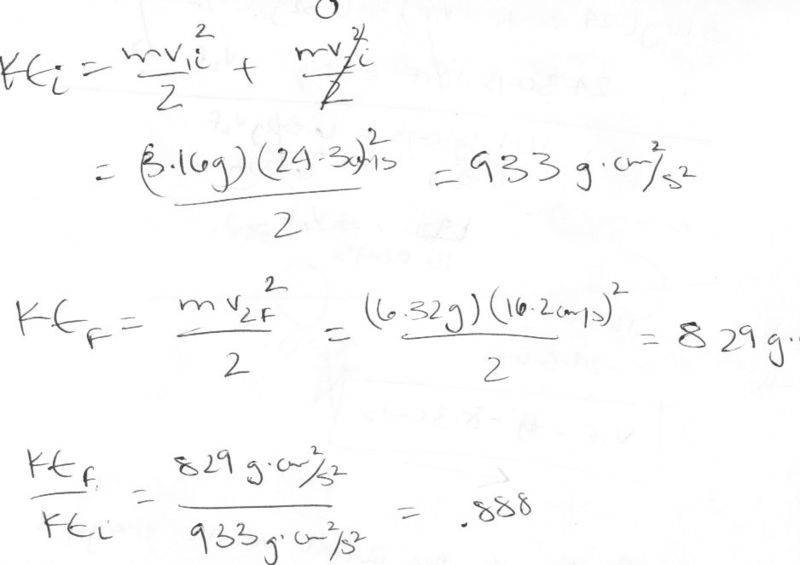 0
KE_i = mv_{1i}^2/2 + mv_{2i}^2/2
= (3.16g)(24.3cm/s)^2/2 = 933 g·cm^2/s^2
KE_F = mv_{2F}^2/2 = (6.32g)(16.2cm/s)^2/2 = 829 g·
KE_F/KE_i = 829 g·cm^2/s^2 / 933 g·cm^2/s^2 = .888